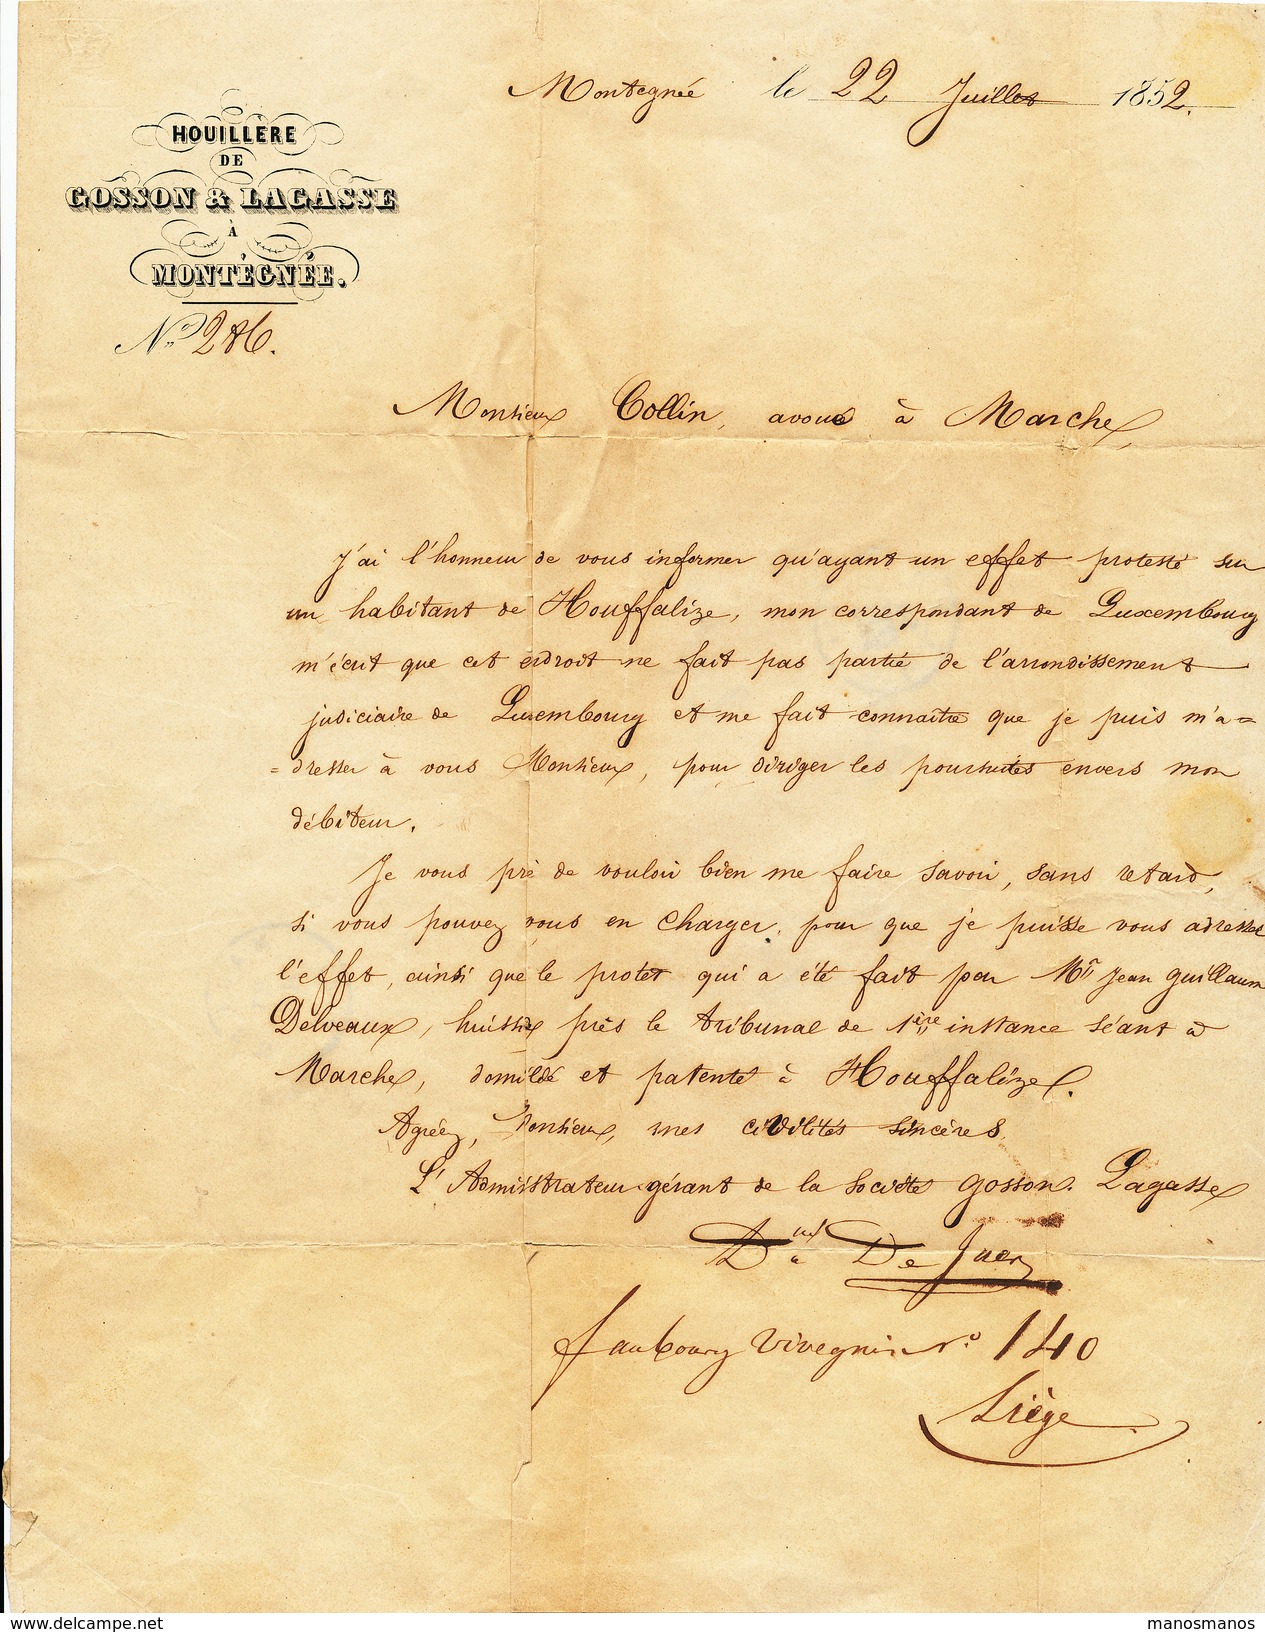 Montegnée le 22 Juillet 1852.
HOUILLÈRE
DE
GOSSON & LAGASSE
À
MONTÉGNÉE.
N° 286.
Monsieur Collin, avoué à Marche,
J'ai l'honneur de vous informer qu'ayant un effet protesté sur
un habitant de Houffalize, mon correspondant de Luxembourg
m'écrit que cet endroit ne fait pas partie de l'arrondissement
judiciaire de Luxembourg et me fait connaitre que je puis m'a=
=dresser à vous Monsieur, pour diriger les poursuites envers mon
débiteur.
Je vous prie de vouloir bien me faire savoir, sans retard,
si vous pouvez vous en charger, pour que je puisse vous adresser
l'effet, ainsi que le protêt qui a été fait par Mr Jean Guillaum
Delveaux, huissier près le tribunal de 1ère instance séant à
Marche, domicilié et patenté à Houffalize.
Agréez, Monsieur, mes civilités sincères
L'Administrateur gérant de la société Gosson. Lagasse
De
faubourg Vivegnis N° 140
Liège
www.delcampe.net manosmanos